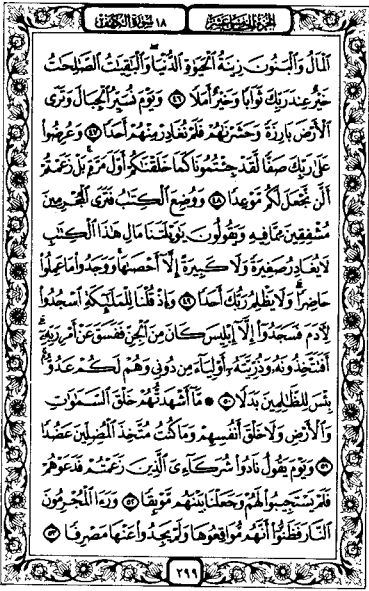 الجزء الخامس عشر ١٨ سورة الكهف
الْمَالُ وَالْبَنُونَ زِينَةُ الْحَيَوٰةِ الدُّنْيَا وَالْبَٰقِيَٰتُ الصَّٰلِحَٰتُ
خَيْرٌ عِندَ رَبِّكَ ثَوَابًا وَخَيْرٌ أَمَلًا ٤٦ وَيَوْمَ نُسَيِّرُ الْجِبَالَ وَتَرَى
الْأَرْضَ بَارِزَةً وَحَشَرْنَٰهُمْ فَلَمْ نُغَادِرْ مِنْهُمْ أَحَدًا ٤٧ وَعُرِضُوا
عَلَىٰ رَبِّكَ صَفًّا لَّقَدْ جِئْتُمُونَا كَمَا خَلَقْنَٰكُمْ أَوَّلَ مَرَّةٍ بَلْ زَعَمْتُمْ
أَلَّن نَّجْعَلَ لَكُم مَّوْعِدًا ٤٨ وَوُضِعَ الْكِتَٰبُ فَتَرَى الْمُجْرِمِينَ
مُشْفِقِينَ مِمَّا فِيهِ وَيَقُولُونَ يَٰوَيْلَتَنَا مَالِ هَٰذَا الْكِتَٰبِ
لَا يُغَادِرُ صَغِيرَةً وَلَا كَبِيرَةً إِلَّا أَحْصَىٰهَا وَوَجَدُوا مَا عَمِلُوا
حَاضِرًا وَلَا يَظْلِمُ رَبُّكَ أَحَدًا ٤٩ وَإِذْ قُلْنَا لِلْمَلَٰٓئِكَةِ اسْجُدُوا
لِءَادَمَ فَسَجَدُوا إِلَّا إِبْلِيسَ كَانَ مِنَ الْجِنِّ فَفَسَقَ عَنْ أَمْرِ رَبِّهِ
أَفَتَتَّخِذُونَهُ وَذُرِّيَّتَهُ أَوْلِيَآءَ مِن دُونِي وَهُمْ لَكُمْ عَدُوٌّ
بِئْسَ لِلظَّٰلِمِينَ بَدَلًا ٥٠ مَّا أَشْهَدتُّهُمْ خَلْقَ السَّمَٰوَٰتِ
وَالْأَرْضِ وَلَا خَلْقَ أَنفُسِهِمْ وَمَا كُنتُ مُتَّخِذَ الْمُضِلِّينَ عَضُدًا
٥١ وَيَوْمَ يَقُولُ نَادُوا شُرَكَآءِيَ الَّذِينَ زَعَمْتُمْ فَدَعَوْهُمْ
فَلَمْ يَسْتَجِيبُوا لَهُمْ وَجَعَلْنَا بَيْنَهُم مَّوْبِقًا ٥٢ وَرَءَا الْمُجْرِمُونَ
النَّارَ فَظَنُّوا أَنَّهُم مُّوَاقِعُوهَا وَلَمْ يَجِدُوا عَنْهَا مَصْرِفًا ٥٣
٢٩٩